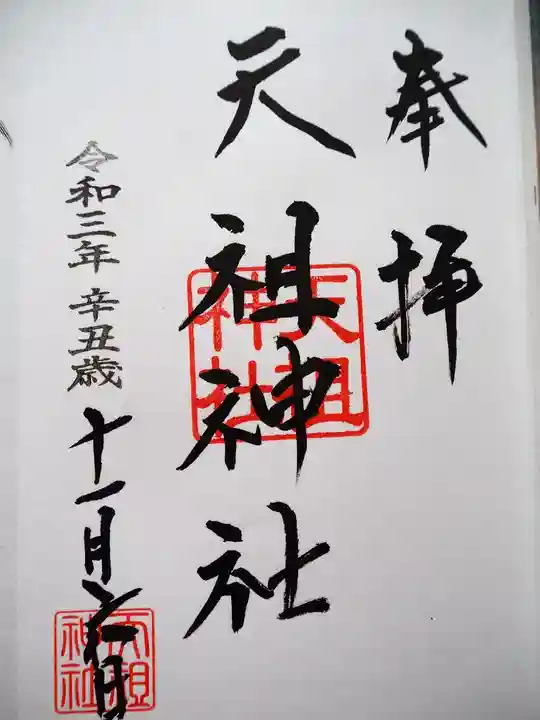 奉拝
天祖神社
天祖神社
令和三年 辛丑歳 十一月六日
天祖神社